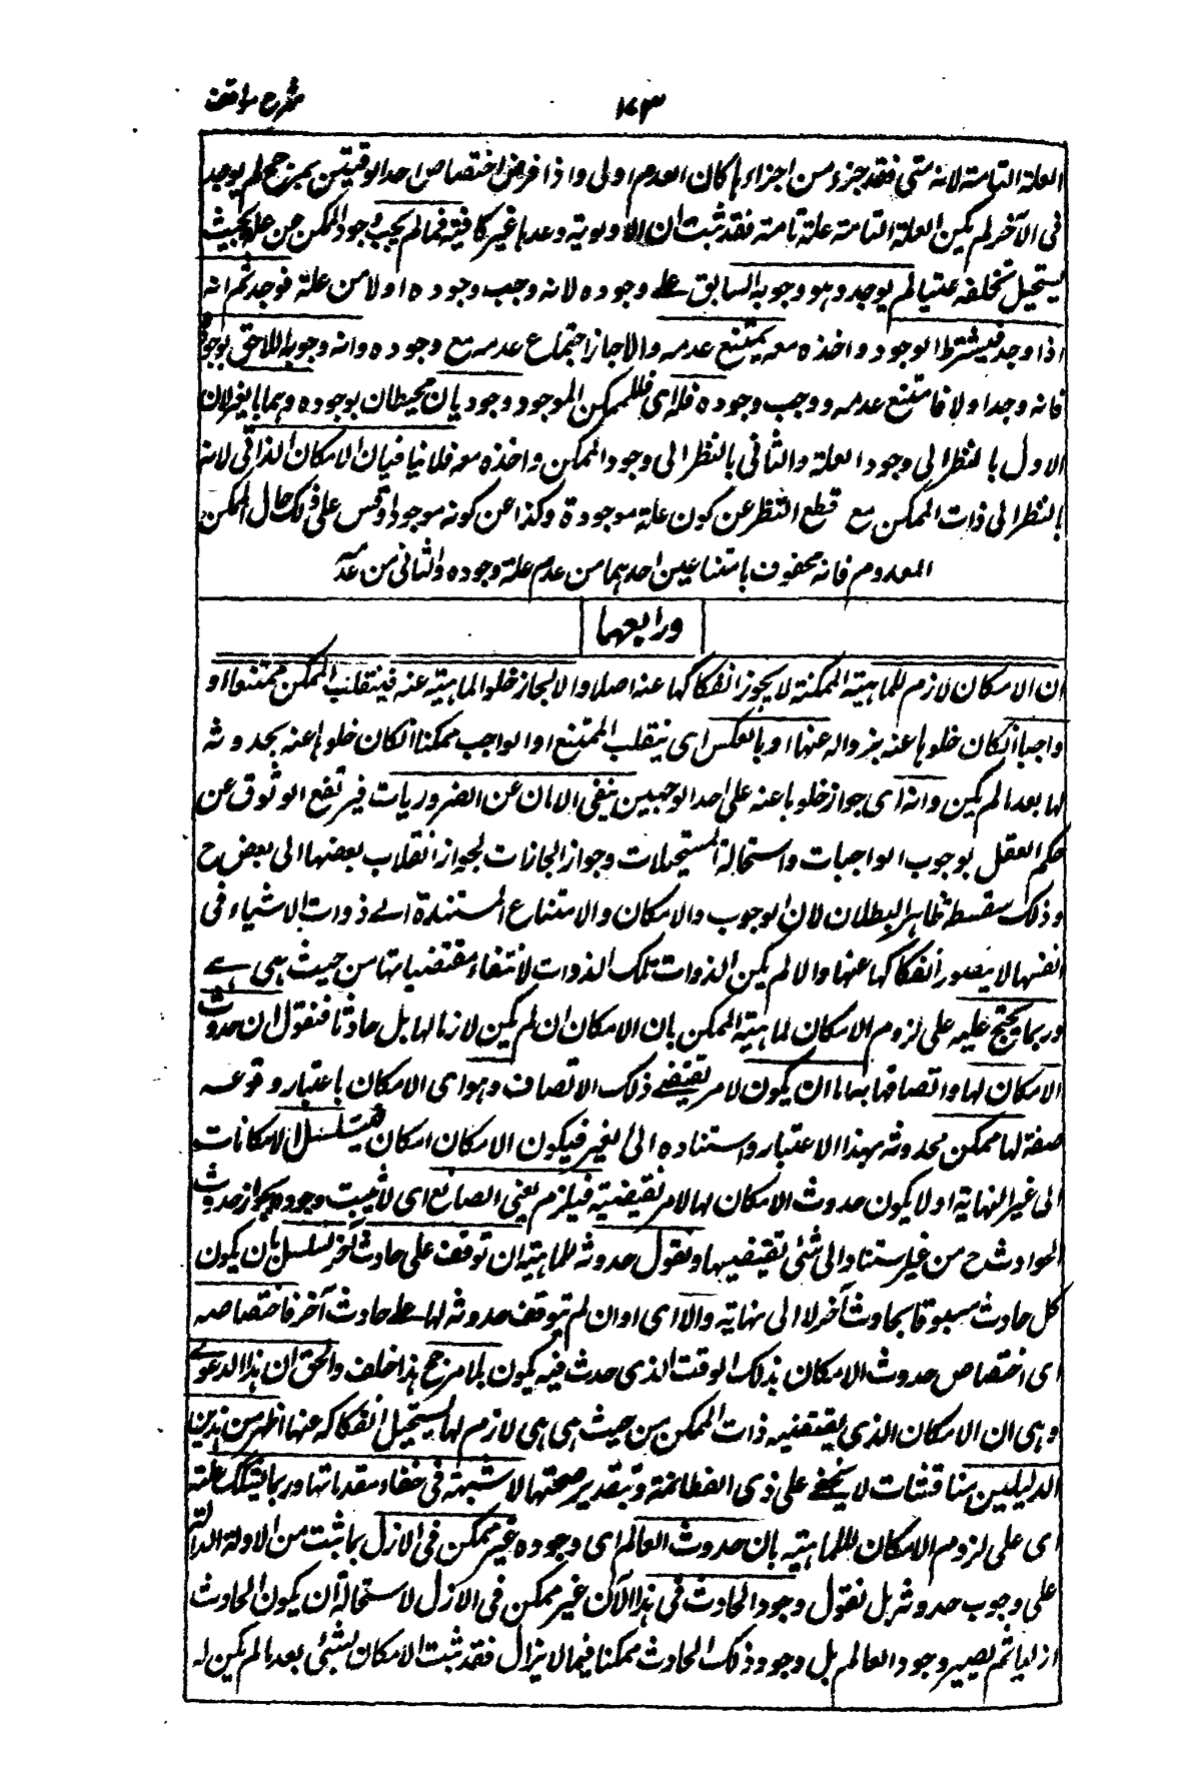 شرح مواقف
١٤٣
العلة التامة لانه متى فقد جزء من اجزاءها كان العدم اولى واذا فرض اختصاص احد الوقتين بمرجح لم يوجد
فى الآخر لم يكن العلة التامة علة تامة فقد ثبت ان الاولوية وحدها غير كافية فمالم يجب وجود الممكن عن علته بحيث
يستحيل تخلفه عنها لم يوجد وهو وجوبه السابق على وجوده لانه وجب وجوده اولا من علة فوجد ثم انه
اذا وجد فبشرط الوجود واخذه معه يمتنع عدمه والا جاز اجتماع عدمه مع وجوده وانه وجوبه اللاحق بوجوده
فانه وجد اولا فامتنع عدمه ووجب وجوده فله اى فللممكن الموجود وجوبان محيطان بوجوده وهما بالغير لان
الاول بالنظر الى وجود العلة والثانى بالنظر الى وجود الممكن واخذه معه فلا ينافيان الامكان الذاتى لانه
بالنظر الى ذات الممكن مع قطع النظر عن كون علة موجودة وكذا عن كونه موجودا وقس على ذلك حال الممكن
المعدوم فانه محفوف بامتناعين احدهما من عدم علة وجوده والثانى من عدمه
ورابعها
ان الامكان لازم للماهية الممكنة لا يجوز انفكاكها عنه اصلا والا لجاز خلو الماهية عنه فينقلب الممكن ممتنعا او
واجبا انكان خلوها عنه بزواله عنها او بالعكس اى ينقلب الممتنع او الواجب ممكنا انكان خلوها عنه بحدوثه
لها بعد ما لم يكن وانه اى جواز خلوها عنه على احد الوجهين ينفى الامان عن الضروريات فيرتفع الوثوق عن
حكم العقل بوجوب الواجبات واستحالة المستحيلات وجواز الجائزات لجواز انقلاب بعضها الى بعض ح
وذلك سفسطة ظاهر البطلان لان الوجوب والامكان والامتناع المستندة الى ذوات الاشياء فى
انفسها لا يتصور انفكاكها عنها والا لم يكن الذوات تلك الذوات لانتفاء مقتضياتها من حيث هى هى
وربما يحتج عليه على لزوم الامكان لماهية الممكن بان الامكان ان لم يكن لازما لها بل حادثا فنقول ان حدوث
الامكان لها واتصافها به اما ان يكون لامر يقتضى ذلك الاتصاف وهو اى الامكان باعتبار وقوعه
صفة لها ممكن لحدوثه بهذا الاعتبار واستناده الى الغير فيكون الامكان امكان فيتسلسل الامكانات
الى غير النهاية او لا يكون حدوث الامكان لها لامر يقتضيه فيلزم نفى الصانع اى لا يثبت وجوده بجواز حدوث
الحوادث ح من غير استناد الى شئ يقتضيها ونقول حدوثه للماهية ان توقف على حادث آخر تسلسل بان يكون
كل حادث مسبوقا بحادث آخر لا الى نهاية والا اى وان لم يتوقف حدوثه لها على حادث آخر فاختصاصه
اى اختصاص حدوث الامكان بذلك الوقت الذى حدث فيه يكون بلا مرجح هذا خلف والحق ان هذا الدعوى
وهى ان الامكان الذى يقتضيه ذات الممكن من حيث هى هى لازم لها يستحيل انفكاكه عنها اظهر من هذين
الدليلين مناقشات لا يخفى على ذى الفطانة وبتقدير صحتها لا شبهة فى خفاء مقدماتها وربما يشكك عليه
اى على لزوم الامكان للماهية بان حدوث العالم اى وجوده غير ممكن فى الازل بما ثبت من الادلة الدالة
على وجوب حدوثه بل نقول وجود الحادث فى هذا الآن غير ممكن فى الازل لاستحالة ان يكون الحادث
ازليا ثم يصير وجود العالم بل وجود ذلك الحادث ممكنا فيما لا يزال فقد ثبت الامكان لشئ بعد ما لم يكن له